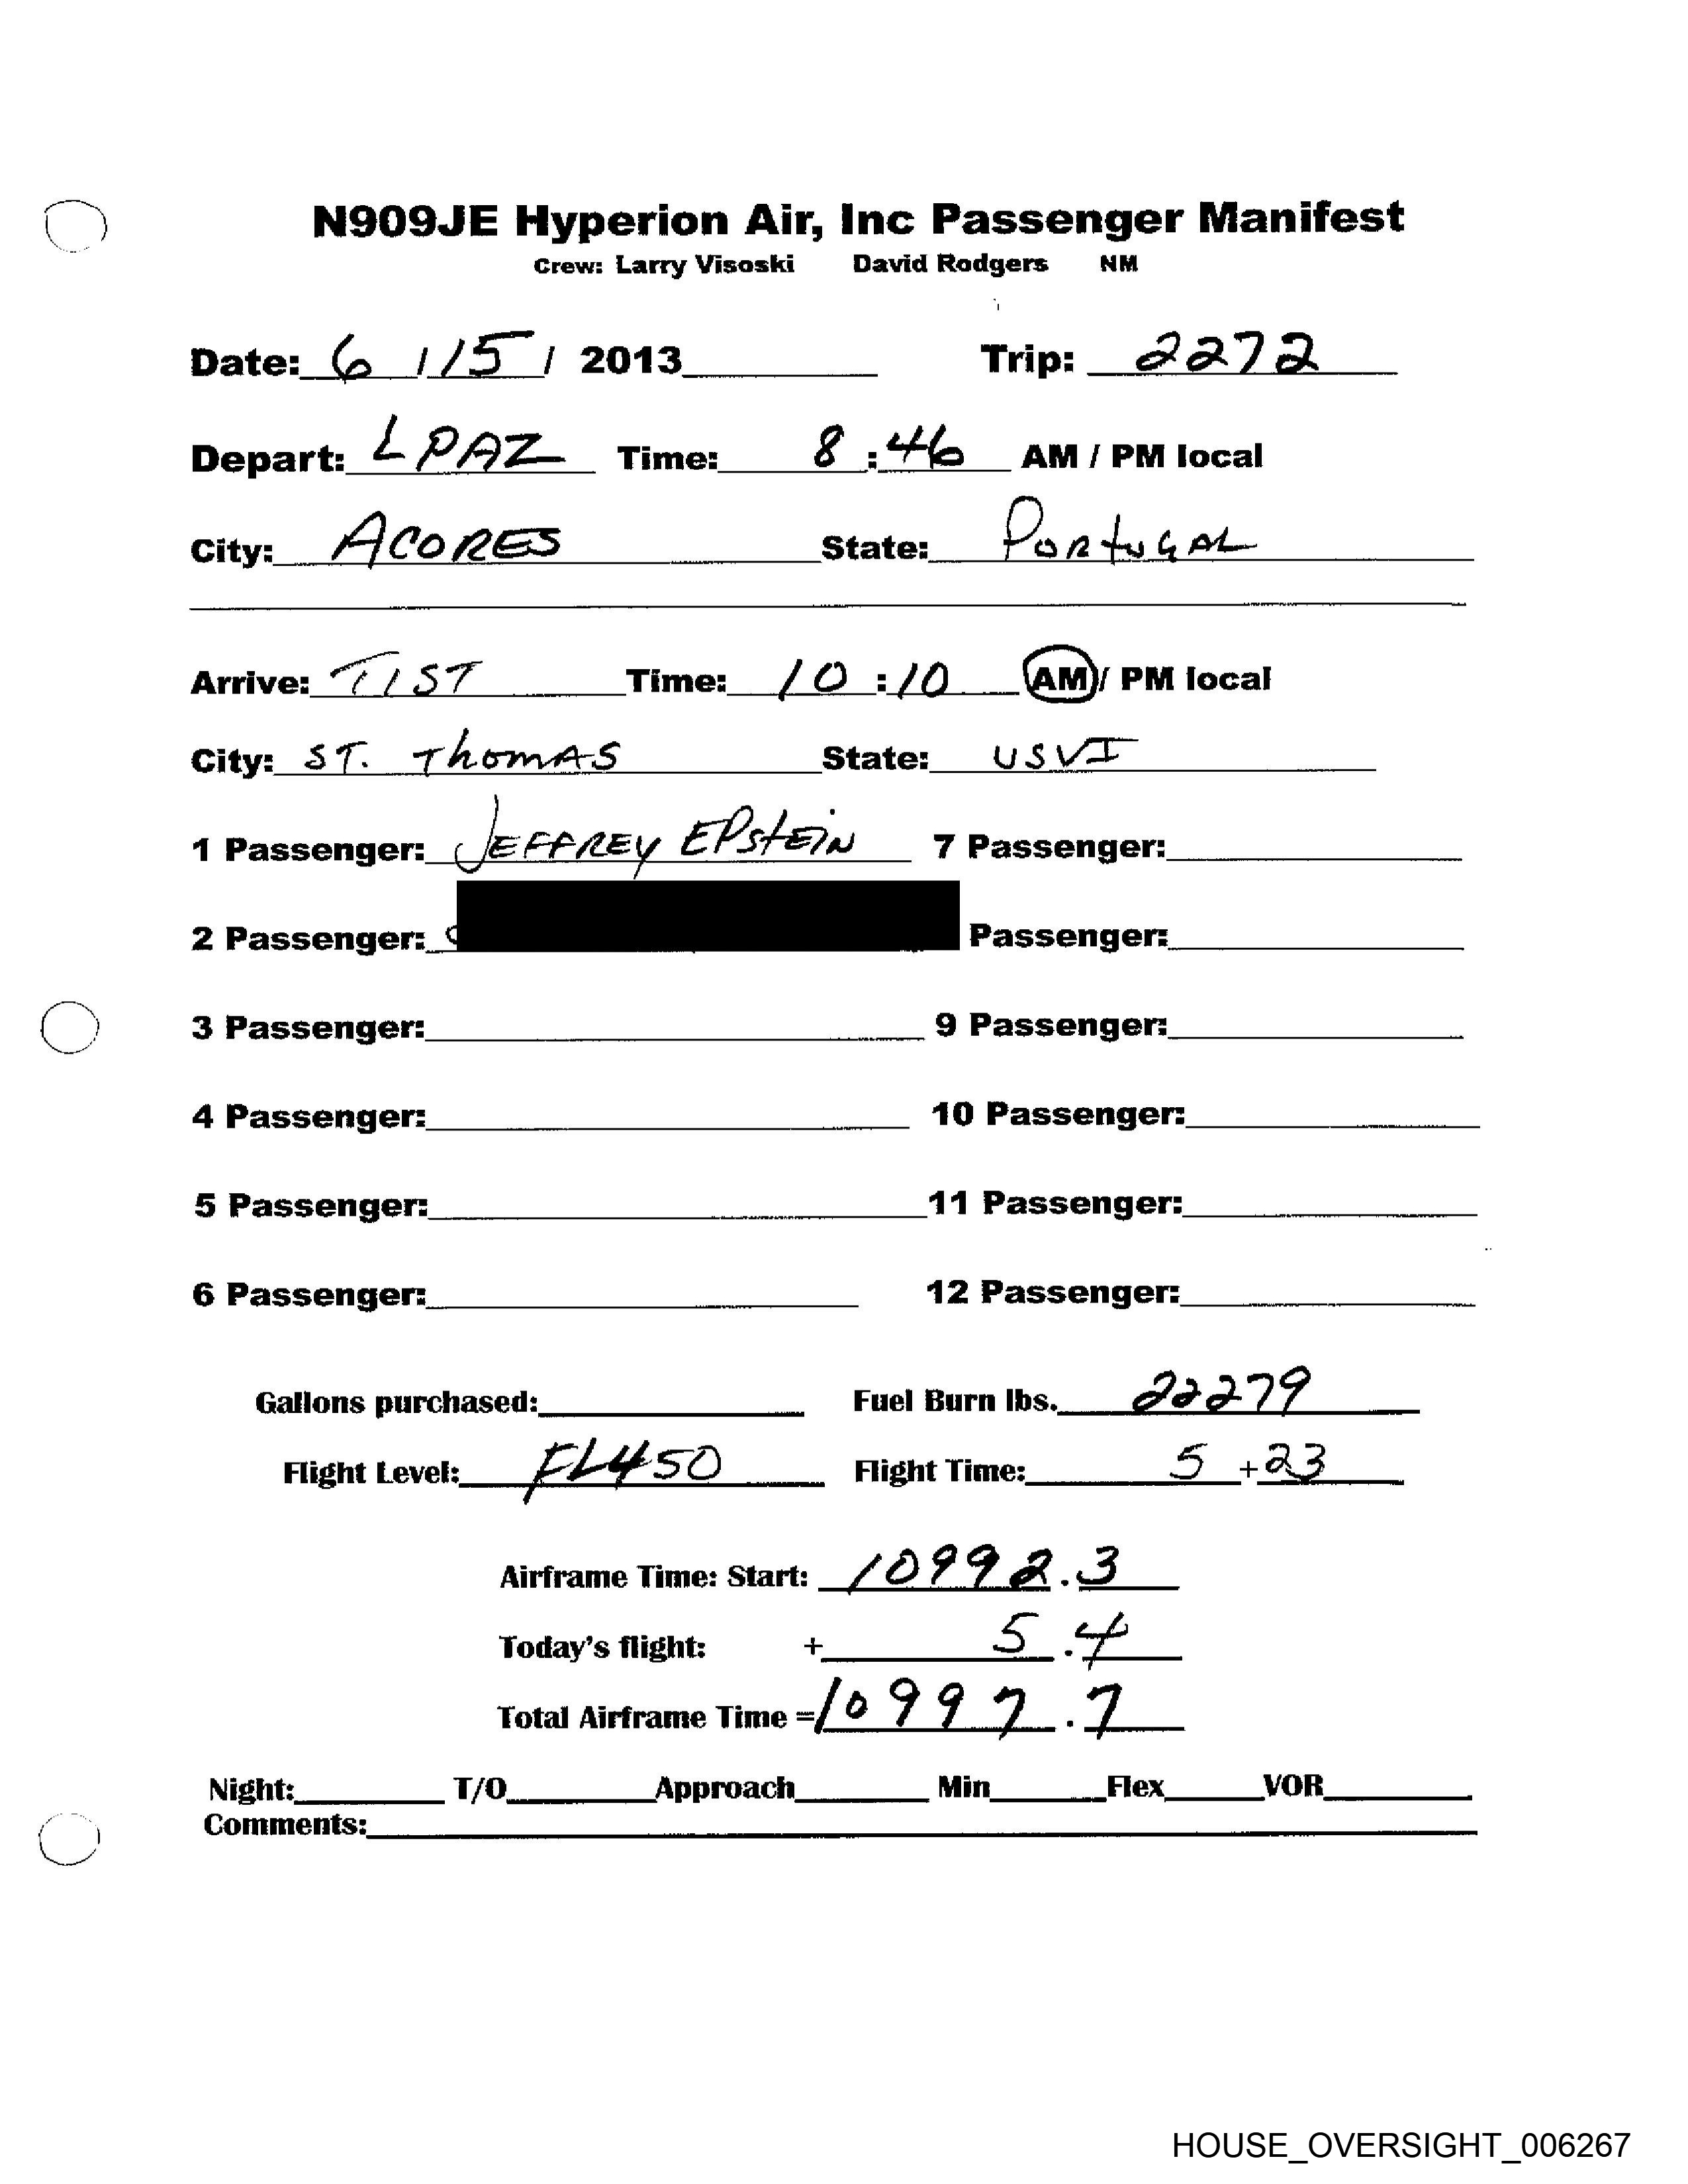 N909JE Hyperion Air, Inc Passenger Manifest
Crew: Larry Visoski David Rodgers NM
Date: 6 / 15 / 2013 Trip: 2272
Depart: LPAZ Time: 8:46 AM / PM local
City: ACORES State: PORTUGAL
Arrive: TIST Time: 10:10 AM / PM local
City: ST. ThomAS State: USVI
1 Passenger: JEFFREY EPStEiN 7 Passenger:
2 Passenger: Passenger:
3 Passenger: 9 Passenger:
4 Passenger: 10 Passenger:
5 Passenger: 11 Passenger:
6 Passenger: 12 Passenger:
Gallons purchased: Fuel Burn lbs. 22279
Flight Level: FL450 Flight Time: 5 + 23
Airframe Time: Start: 10992.3
Today's flight: + 5.4
Total Airframe Time = 10997.7
Night: T/O Approach Min Flex VOR
Comments:
HOUSE_OVERSIGHT_006267